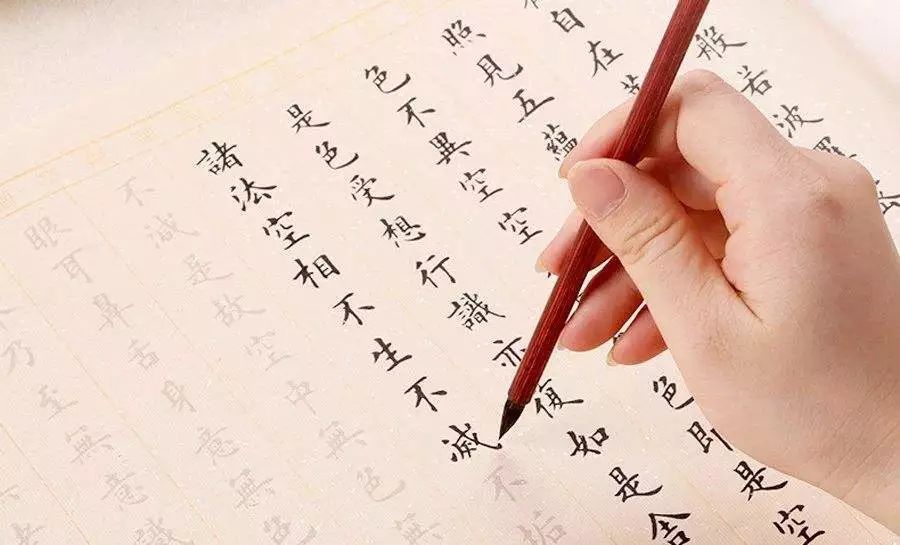 般若波羅
自在
照見五蘊
色不異空空色即是空
是色受想行識亦復如是舍
諸法空相不生不滅不垢
不減是故空中無色無
眼耳鼻舌身意無色
乃至無意識